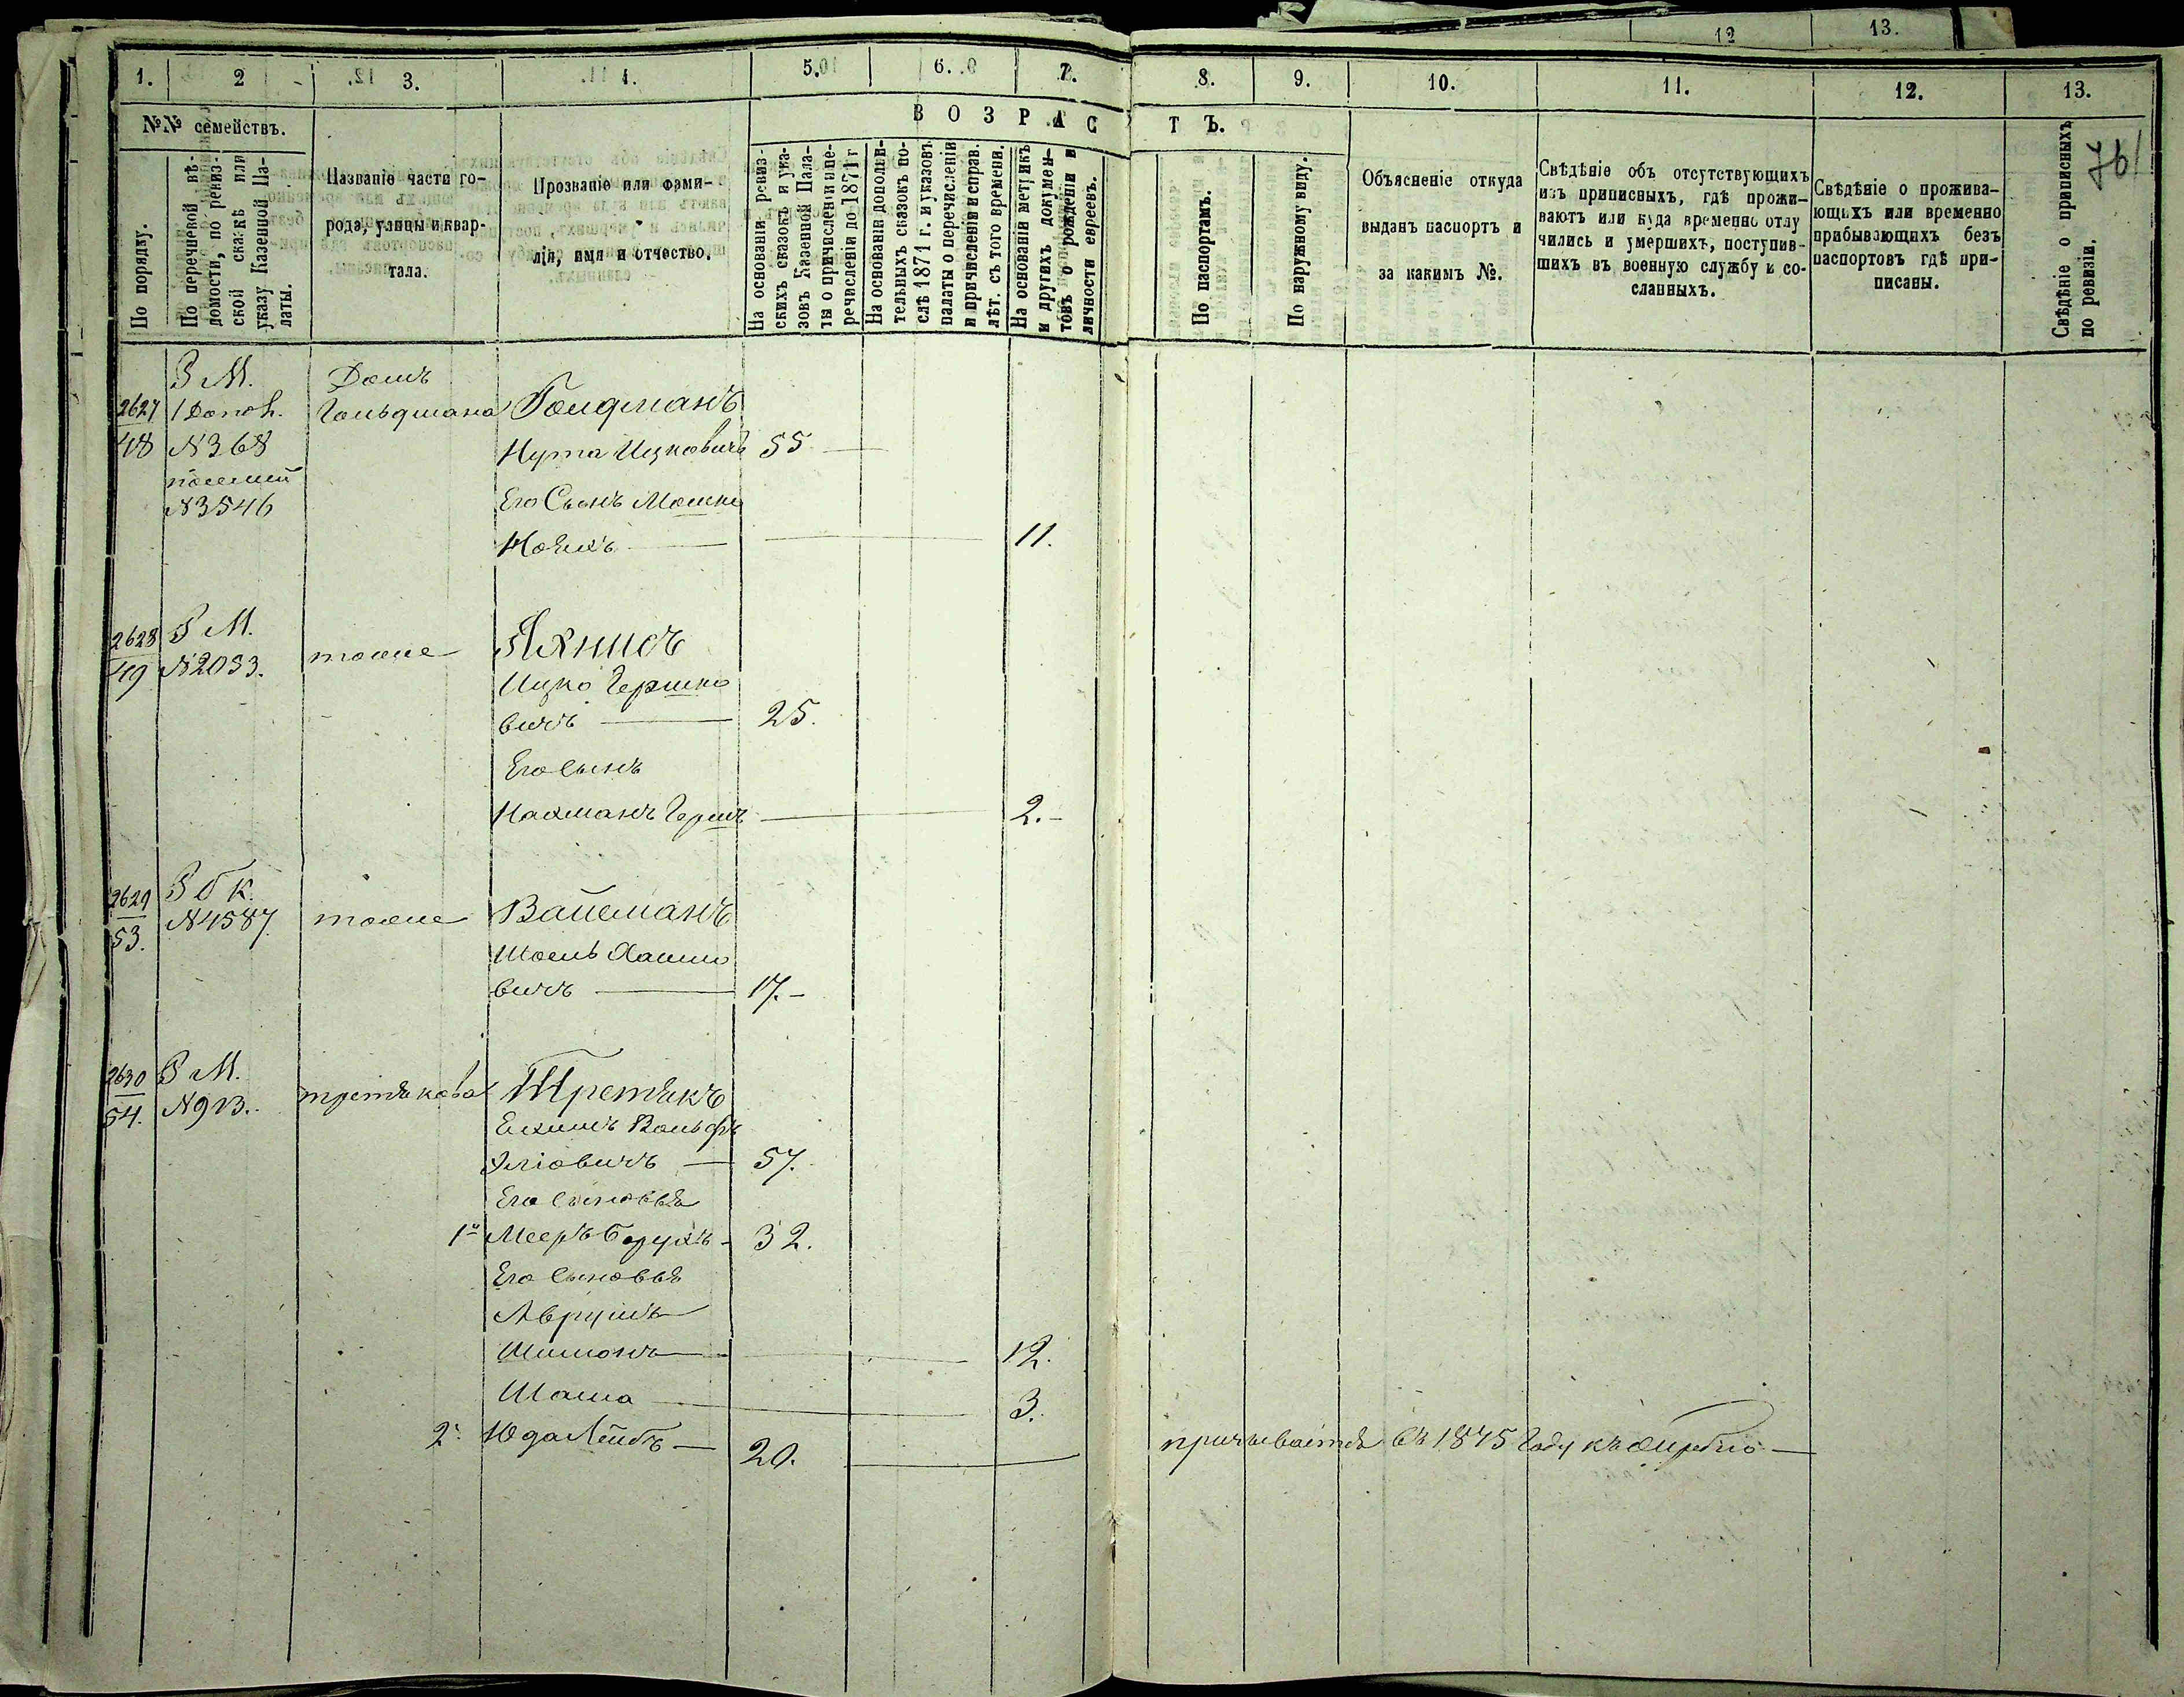 12
13.
1.
2
3.
4.
5.
6.
7.
8.
9.
10.
11.
12.
13.
№№ семействъ.
ВОЗРАСТЪ.
По порядку.
По перечневой вѣ-
домости, по ревиз-
ской сказкѣ или
указу Казенной Па-
латы.
Названіе части го-
рода, улицы и квар-
тала.
Прозваніе или фами-
лія, имя и отчество.
На основаніи ревиз-
скихъ сказокъ и ука-
зовъ Казенной Пала-
ты о причисленіи и пе-
речисленіи до 1871 г
На основаніи дополни-
тельныхъ сказокъ по-
слѣ 1871 г. и указовъ
палаты о перечисленіи
и причисленіи и справ.
лѣт. съ того времени.
На основаніи метрикъ
и другихъ докумен-
товъ о рожденіи и
личности евреевъ.
По паспортамъ.
По наружному виду.
Объясненіе откуда
выданъ паспортъ и
за какимъ №.
Свѣдѣніе объ отсутствующихъ
изъ приписныхъ, гдѣ прожи-
ваютъ или куда временно отлу
чились и умершихъ, поступив-
шихъ въ военную службу и со-
сланныхъ.
Свѣдѣніе о прожива-
ющихъ или временно
прибывающихъ безъ
паспортовъ гдѣ при-
писаны.
Свѣдѣніе о приписныхъ
по ревизіи.
761
2627
48
М.
1 Допол.
N 368
N 3546
Домъ
Гольдмана
Голдманъ
Нута Ицковичъ 55
Его Сынъ Мошко
11.
2628
49
М.
N 2053.
тоже
Яхнисъ
Ицко Гершко
вичъ 25.
Его сынъ
Нахманъ Гершъ 2.
2629
53.
N 4587.
тоже
Вайсманъ
Шоель Хаимо
вичъ 17.
2630
54.
М.
N 913.
третякова
Третякъ
Вольфъ
Эліовичъ 57.
Его сыновья
1й Мееръ Борухъ 32.
Его сыновья
Аврумъ
Шимонъ 12.
3.
2й Юда Лейбъ 20. въ 1875 году къ жребію